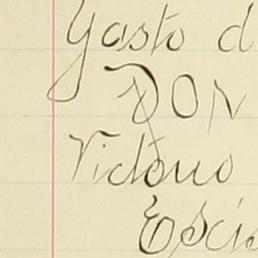 Gasto d
DON
Victorio
Esci